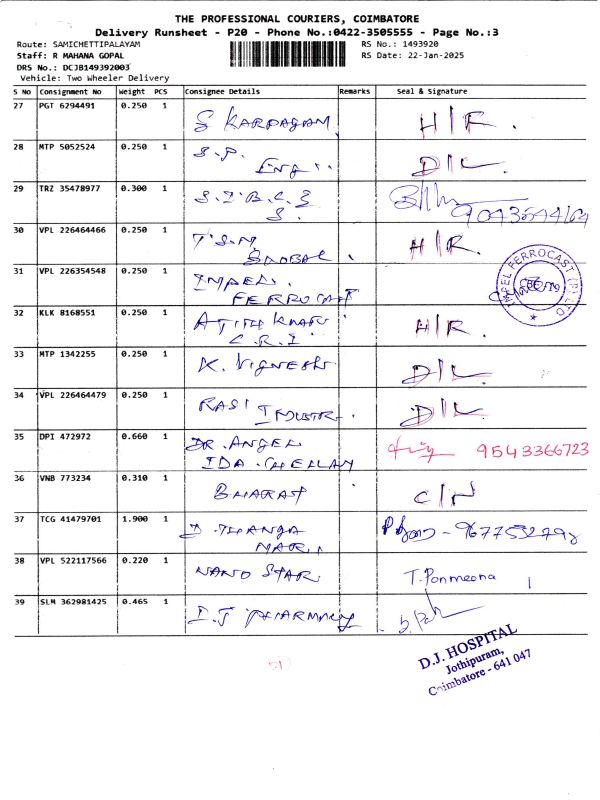 THE PROFESSIONAL COURIERS, COIMBATORE
Delivery Runsheet - P20 - Phone No.:0422-3505555 - Page No.:3
Route: SAMICHETTIPALAYAM RS No.: 1493920
Staff: R MAHANA GOPAL RS Date: 22-Jan-2025
DRS No.: DCJB149392003
Vehicle: Two Wheeler Delivery
S No Consignment No Weight PCS Consignee Details Remarks Seal & Signature
27 PGT 6294491 0.250 1 S KARPAGAM H/R.
28 MTP 5052524 0.250 1 S.P. D/L.
Eng..
29 TRZ 35478977 0.300 1 S.I.B.C.S
S.
30 VPL 226464466 0.250 1 T.S.M H/R.
GLOBAL.
31 VPL 226354548 0.250 1 IMPEL. IMPEL FERROCAST (P) LTD
FERROCAST
32 KLK 8168551 0.250 1 H/R.
C.R.I
33 MTP 1342255 0.250 1 K. VIGNESH D/L.
34 VPL 226464479 0.250 1 RASI INDUSTRI. D/L.
35 DPI 472972 0.660 1 DR. ANGEL 9543366723
IDA.CHELLAM
36 VNB 773234 0.310 1 BHARAT C/N
37 TCG 41479701 1.900 1 D.THANGA
MARI.
38 VPL 522117566 0.220 1 NANO STAR T. Ponmeena
39 SLM 362981425 0.465 1 D.J PHARMACY
D.J. HOSPITAL
Jothipuram,
Coimbatore - 641 047